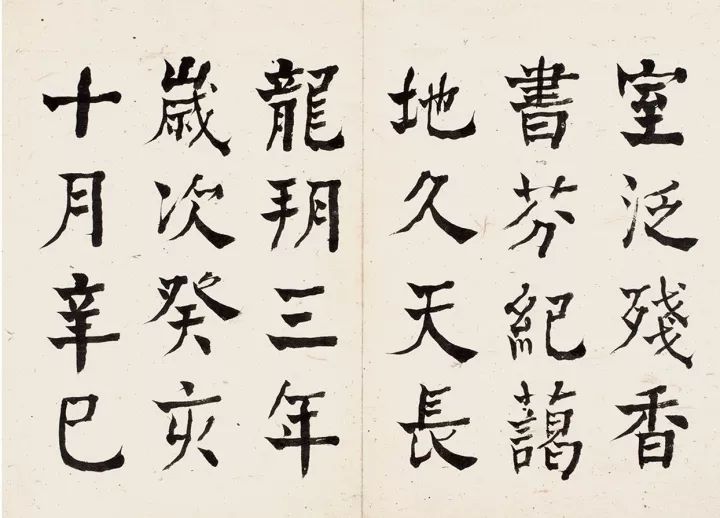 室泛殘香
書芬紀藹
地久天長
龍朔三年
歲次癸亥
十月辛巳